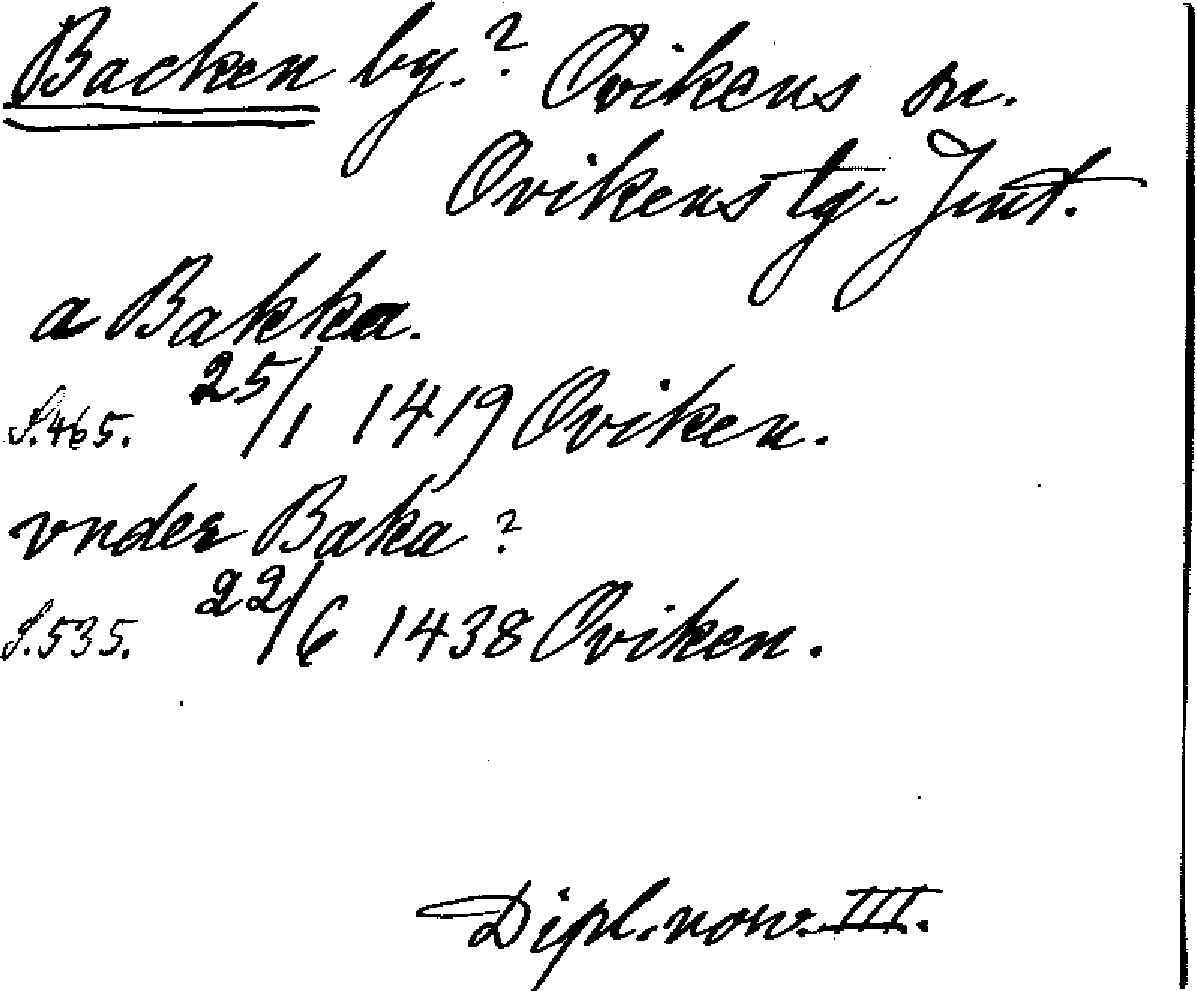 Backen by.? Ovikens sn.
Ovikens tg. Jmt.
a Bakka.
S.465. 25/1 1419 Oviken.
vnder Baka ?
S.535. 22/6 1438 Oviken.
Dipl. norv. III.